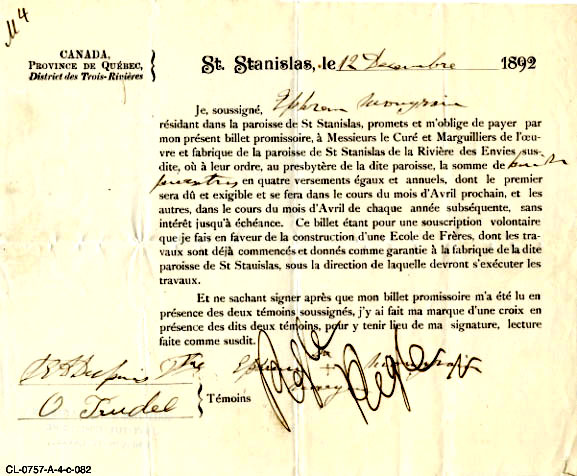 CANADA,
PROVINCE DE QUÉBEC,
District des Trois-Rivières
St. Stanislas, le 12 Decembre 1892
Je, soussigné, Ephrem Mongrain
résidant dans la paroisse de St Stanislas, promets et m'oblige de payer par
mon présent billet promissoire, à Messieurs le Curé et Marguilliers de l'œu-
vre et fabrique de la paroisse de St Stanislas de la Rivière des Envies sus-
dite, où à leur ordre, au presbytère de la dite paroisse, la somme de
piastres en quatre versements égaux et annuels, dont le premier
sera dû et exigible et se fera dans le cours du mois d'Avril prochain, et les
autres, dans le cours du mois d'Avril de chaque année subséquente, sans
intérêt jusqu'à échéance. Ce billet étant pour une souscription volontaire
que je fais en faveur de la construction d'une Ecole de Frères, dont les tra-
vaux sont déjà commencés et donnés comme garantie à la fabrique de la dite
paroisse de St Stanislas, sous la direction de laquelle devront s'exécuter les
travaux.
Et ne sachant signer après que mon billet promissoire m'a été lu en
présence des deux témoins soussignés, j'y ai fait ma marque d'une croix en
présence des dits deux témoins, pour y tenir lieu de ma signature, lecture
faite comme susdit.
Ephrem sa + Mongrain
marque
Ptre
O Trudel
Témoins
Payé Payé
CL-0757-A-4-c-082